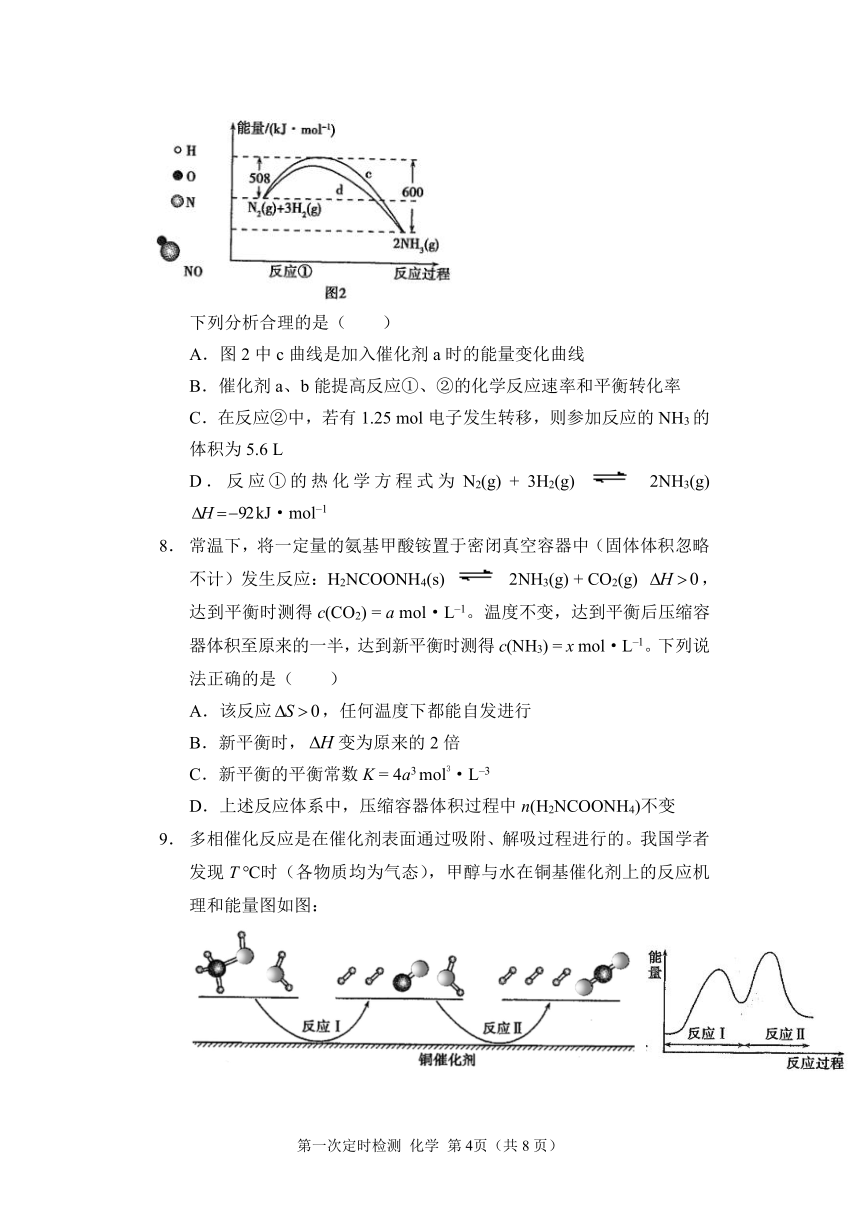 能量/(kJ·mol⁻¹)
H
O
N
NO
508
c
d
600
N₂(g)+3H₂(g)
2NH₃(g)
反应①
反应过程
图2
下列分析合理的是（　　）
A．图 2 中 c 曲线是加入催化剂 a 时的能量变化曲线
B．催化剂 a、b 能提高反应①、②的化学反应速率和平衡转化率
C．在反应②中，若有 1.25 mol 电子发生转移，则参加反应的 NH₃ 的
体积为 5.6 L
D．反应①的热化学方程式为 N₂(g) + 3H₂(g) ⇌ 2NH₃(g)
ΔH = −92 kJ·mol⁻¹
8． 常温下，将一定量的氨基甲酸铵置于密闭真空容器中（固体体积忽略
不计）发生反应：H₂NCOONH₄(s) ⇌ 2NH₃(g) + CO₂(g) ΔH > 0，
达到平衡时测得 c(CO₂) = a mol·L⁻¹。温度不变，达到平衡后压缩容
器体积至原来的一半，达到新平衡时测得 c(NH₃) = x mol·L⁻¹。下列说
法正确的是（　　）
A．该反应 ΔS > 0，任何温度下都能自发进行
B．新平衡时，ΔH 变为原来的 2 倍
C．新平衡的平衡常数 K = 4a³ mol³·L⁻³
D．上述反应体系中，压缩容器体积过程中 n(H₂NCOONH₄)不变
9． 多相催化反应是在催化剂表面通过吸附、解吸过程进行的。我国学者
发现 T ℃时（各物质均为气态），甲醇与水在铜基催化剂上的反应机
理和能量图如图：
反应Ⅰ
反应Ⅱ
铜催化剂
能量
反应Ⅰ
反应Ⅱ
反应过程
第一次定时检测 化学 第 4页（共 8 页）